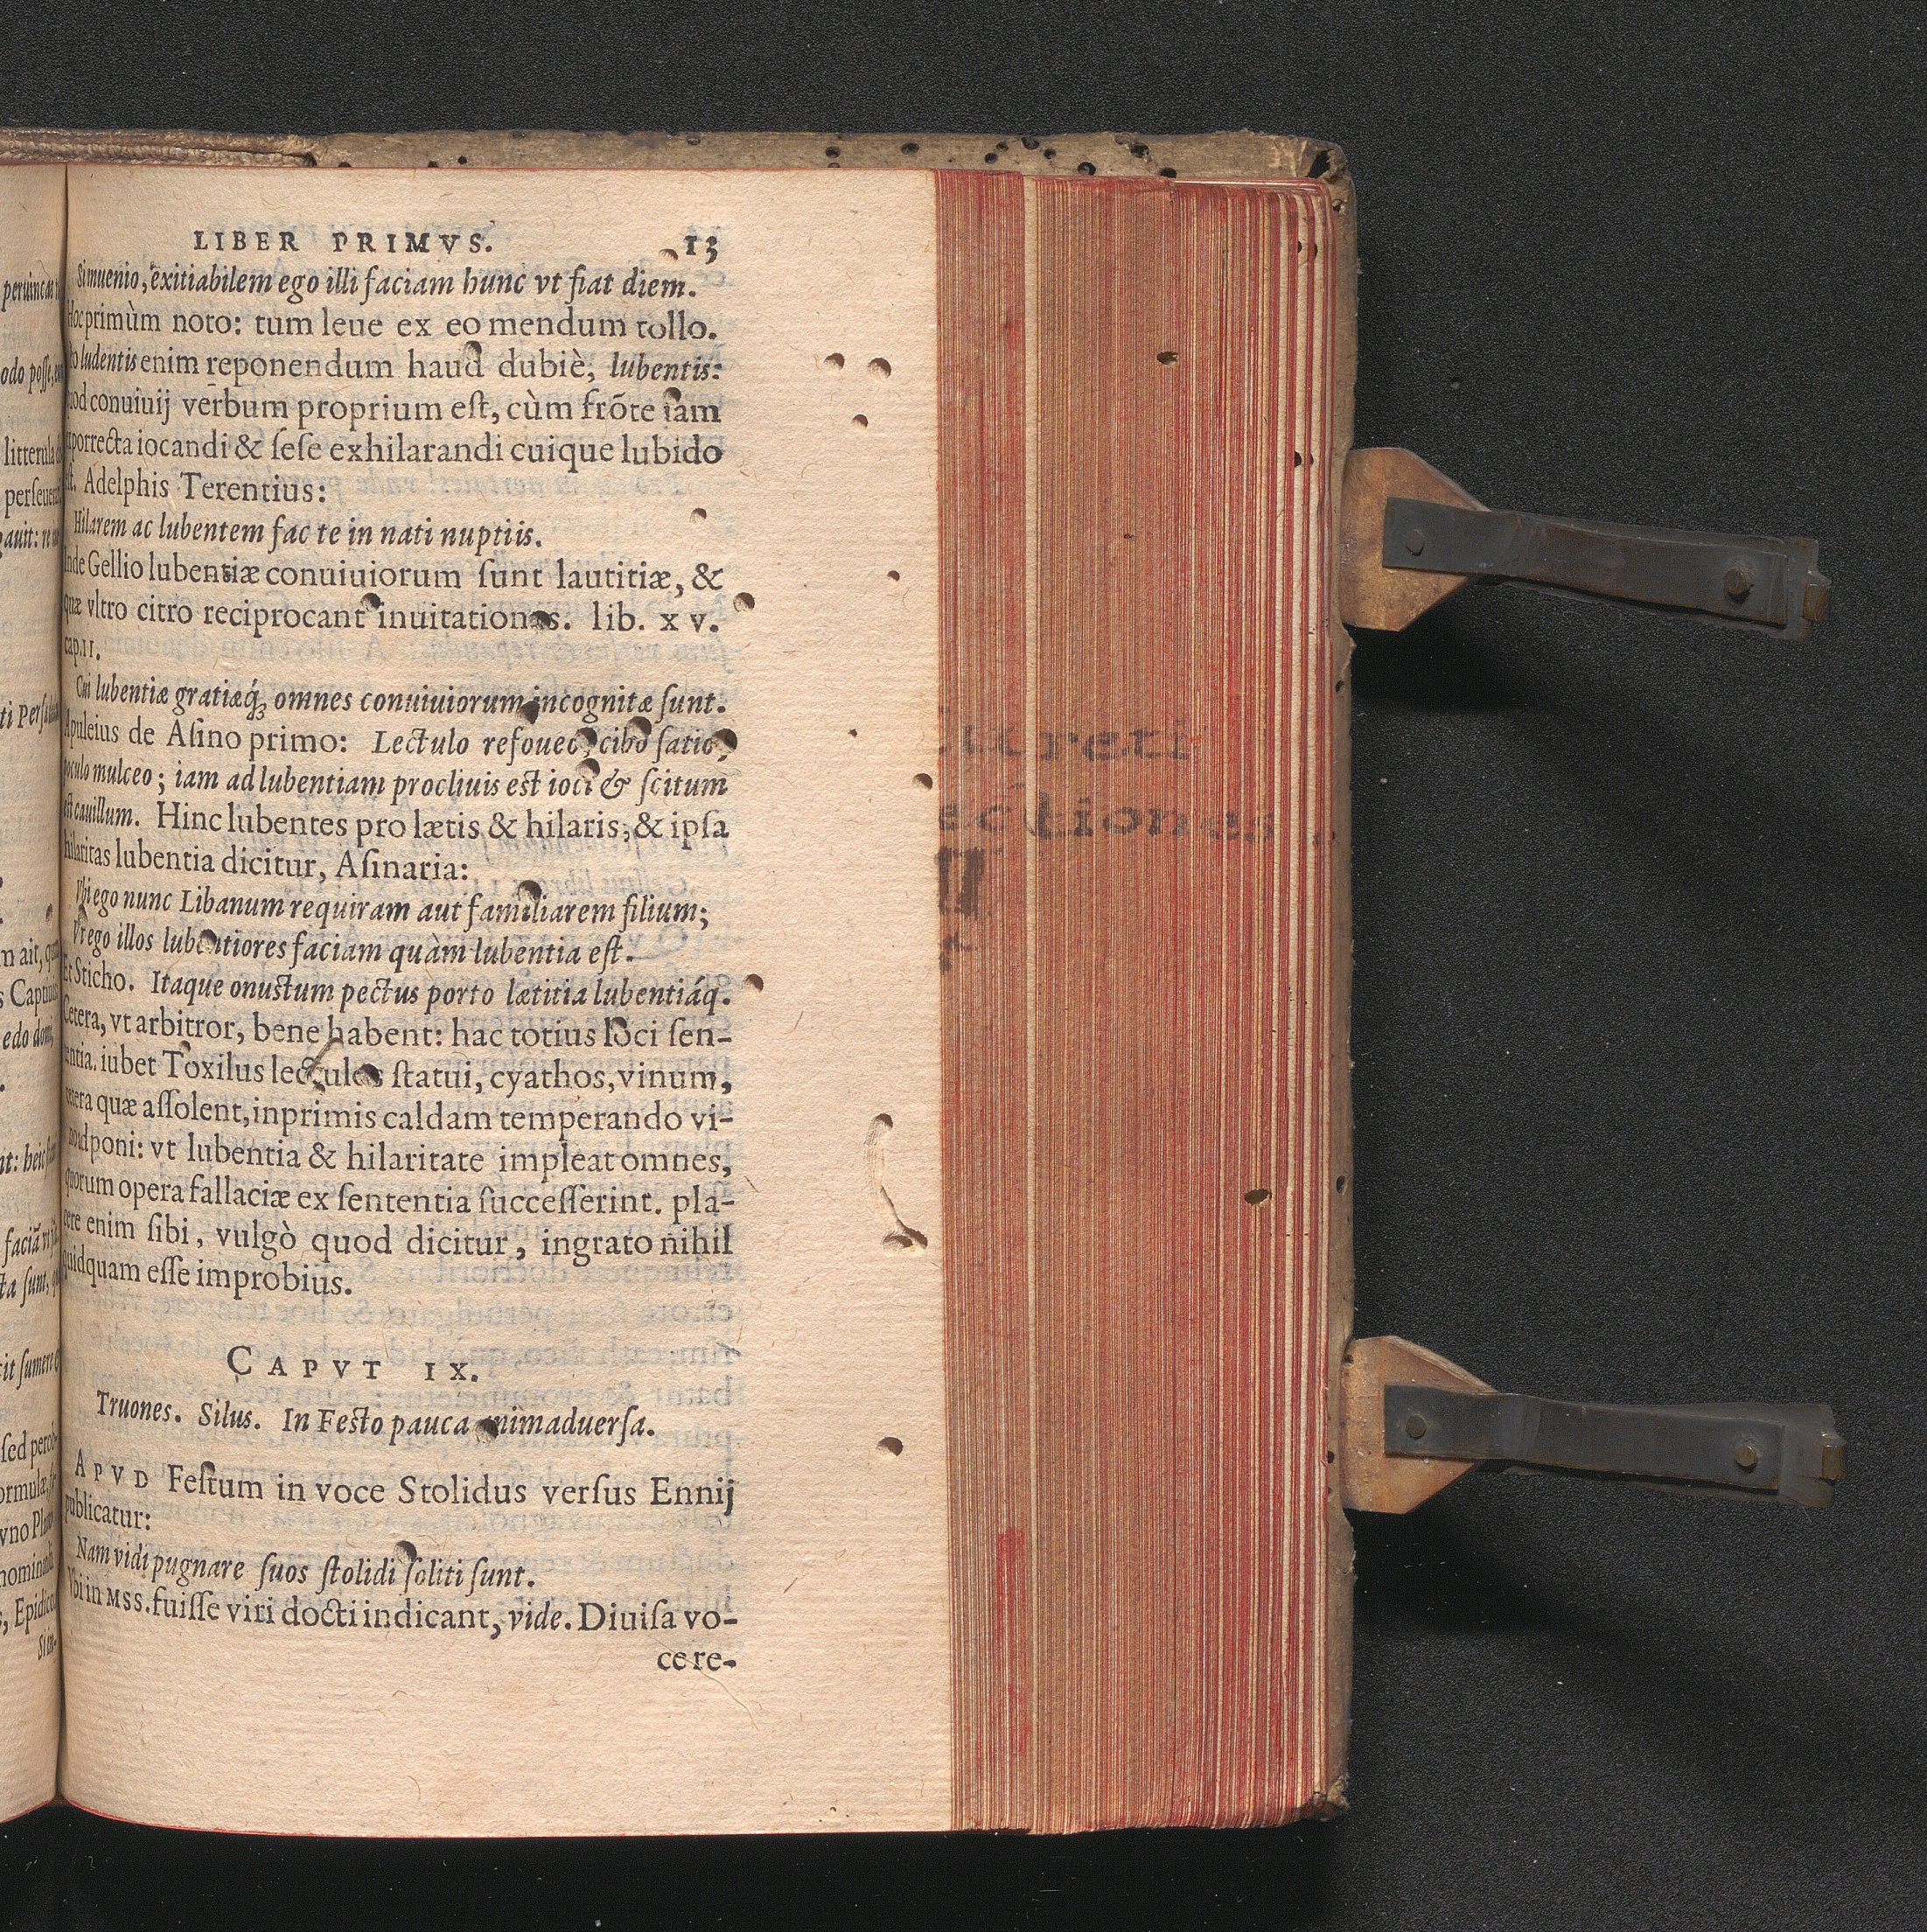 LIBER PRIMVS. 13
Si inuenio, exitiabilem ego illi faciam hunc vt fiat diem.
Hoc primùm noto: tum leue ex eo mendum tollo.
ludentis enim reponendum haud dubiè, lubentis:
quod conuiuij verbum proprium eſt, cùm frõte iam
porrecta iocandi & ſeſe exhilarandi cuique lubido
Adelphis Terentius:
Hilarem ac lubentem fac te in nati nuptiis.
Inde Gellio lubentiæ conuiuiorum ſunt lautitiæ, &
quæ vltro citro reciprocant inuitationes. lib. xv.
cap. 11.
Cui lubentiæ gratiæq́; omnes conuiuiorum incognitæ ſunt.
Apuleius de Aſino primo: Lectulo refoueo, cibo ſatio,
poculo mulceo; iam ad lubentiam procliuis eſt ioci & ſcitum
eſt cauillum. Hinc lubentes pro lætis & hilaris, & ipſa
hilaritas lubentia dicitur, Aſinaria:
Vbi ego nunc Libanum requiram aut familiarem filium;
Vt ego illos lubentiores faciam quàm lubentia eſt.
Et Sticho. Itaque onuſtum pectus porto lætitia lubentiáq.
Cetera, vt arbitror, bene habent: hac totius loci ſen-
tentia. iubet Toxilus lectulos ſtatui, cyathos, vinum,
cetera quæ aſſolent, inprimis caldam temperando vi-
no id poni: vt lubentia & hilaritate impleat omnes,
quorum opera fallaciæ ex ſententia ſucceſſerint. pla-
cere enim ſibi, vulgò quod dicitur, ingrato nihil
quidquam eſſe improbius.
CAPVT IX.
Truones. Silus. In Feſto pauca animaduerſa.
APVD Feſtum in voce Stolidus verſus Ennij
publicatur:
Nam vidi pugnare ſuos ſtolidi ſoliti ſunt.
Vbi in MSS. fuiſſe viri docti indicant, vide. Diuiſa vo-
ce re-